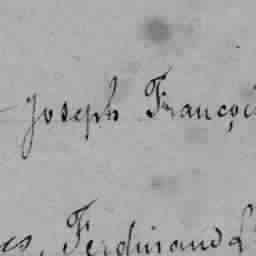 Joseph Françoi
es, Ferdinand L